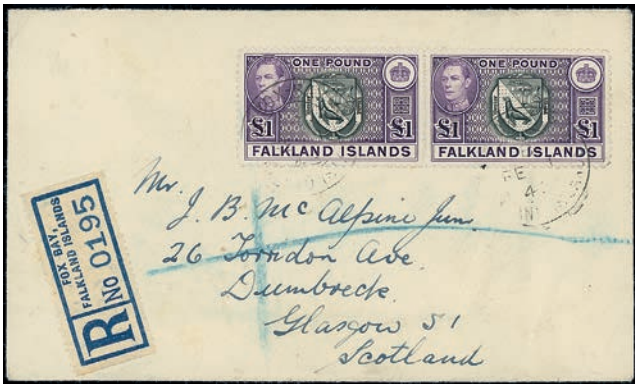 ONE POUND
£1 £1
FALKLAND ISLANDS
ONE POUND
£1 £1
FALKLAND ISLANDS
FOX BAY,
FALKLAND ISLANDS
R No 0195
Mr.
J. B. Mc Alpine Junr.
26 Torridon Ave.
Dumbreck.
Glasgow S1
Scotland